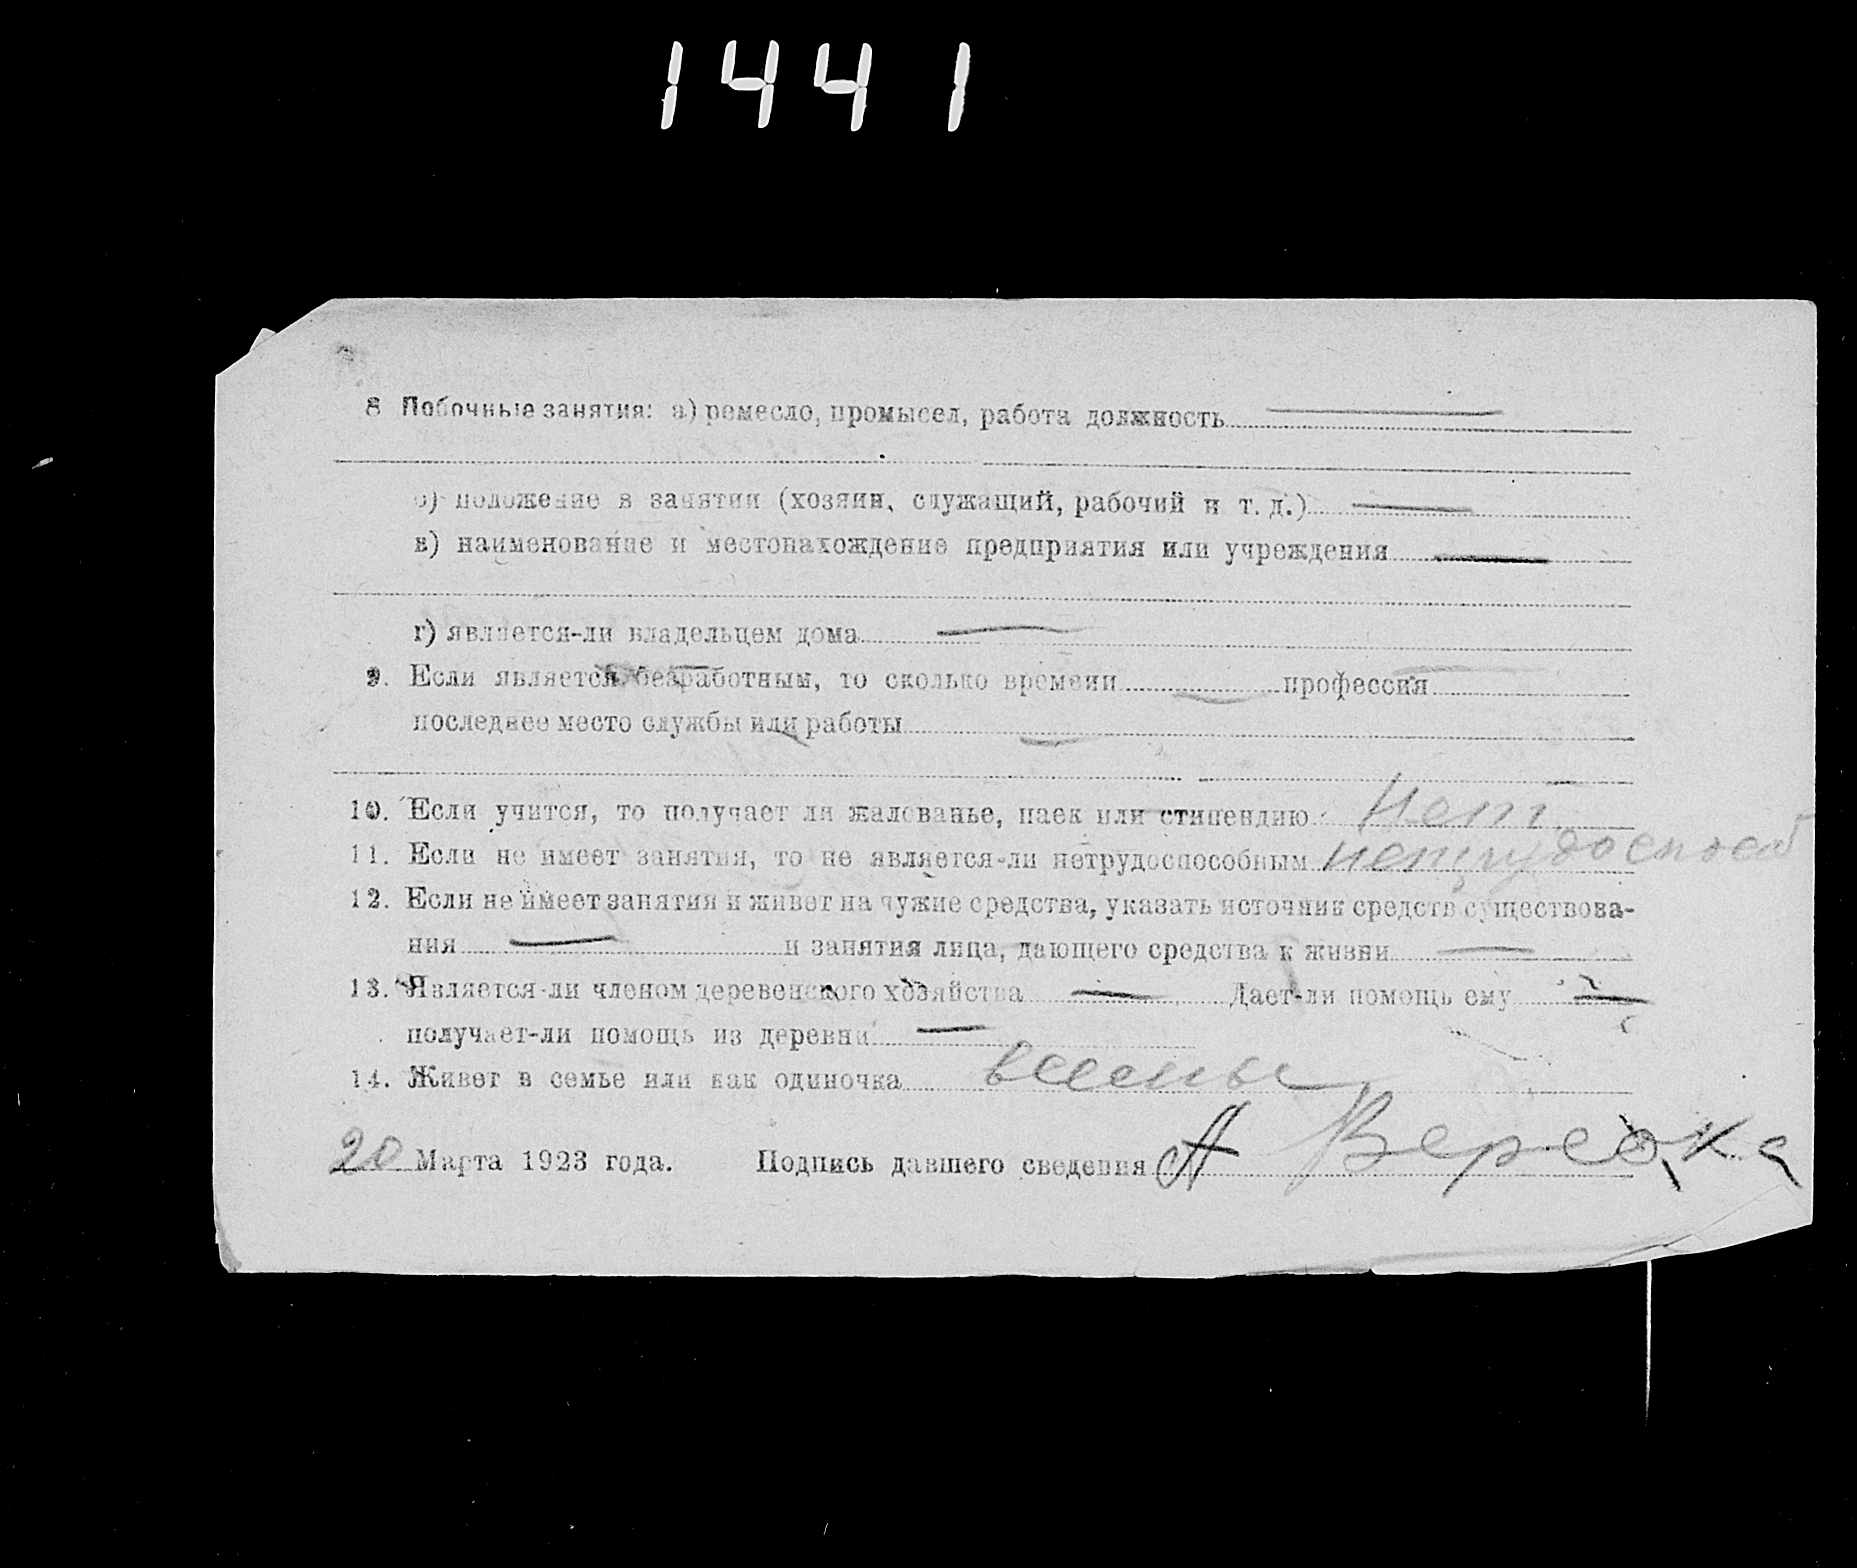 1441
8 Побочные занятия: а) ремесло, промысел, работа должность
б) положение в занятии (хозяин, служащий, рабочий и т. д.)
в) наименование и местонахождение предприятия или учреждения
г) является-ли владельцем дома
9. Если является безработным, то сколько времени профессия
последнее место службы или работы
10. Если учится, то получает ли жалованье, паек или стипендию Нет
11. Если не имеет занятия, то не является-ли нетрудоспособным нетрудоспособ
12. Если не имеет занятия и живет на чужие средства, указать источник средств существова-
ния и занятия лица, дающего средства к жизни
13. Является-ли членом деревенского хозяйства Дает-ли помощь ему
получает-ли помощь из деревни
14. Живет в семье или как одиночка
20 Марта 1923 года. Подпись давшего сведения А